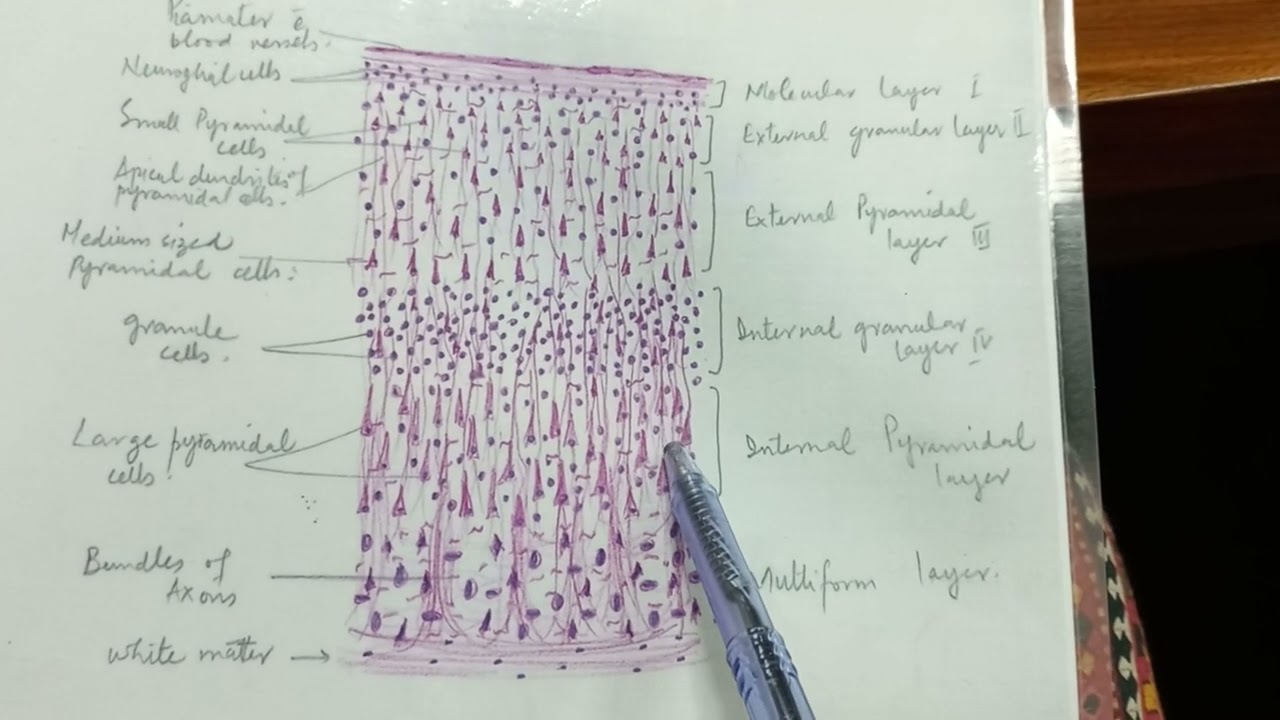 Piamater c̄
blood vessels.
Neuroghial cells
Small Pyramidal
cells
Apical dendrites of
pyramidal cells.
Medium sized
Pyramidal cells.
granule
cells.
Large pyramidal
cells.
Bundles of
Axons
White matter →
Molecular layer I
External granular layer II
External Pyramidal
layer III
Internal granular
layer IV
Internal Pyramidal
layer
Multiform layer.